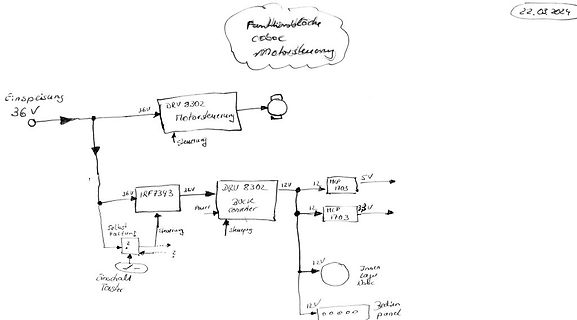 22.03.2024
Funktionsblöcke
coboc
Motorsteuerung
Einspeisung
36V
36V
DRV 8302
Motorsteuerung
Steuerung
36V
IRF7343
36V
DRV 8302
Buck
Converter
12V
12
MCP
1703
5V
12
MCP
1703
3,3V
Selbst
haltung
Steuerung
Einschalt
Taster
12V
Innen
12V
Bedien
panel